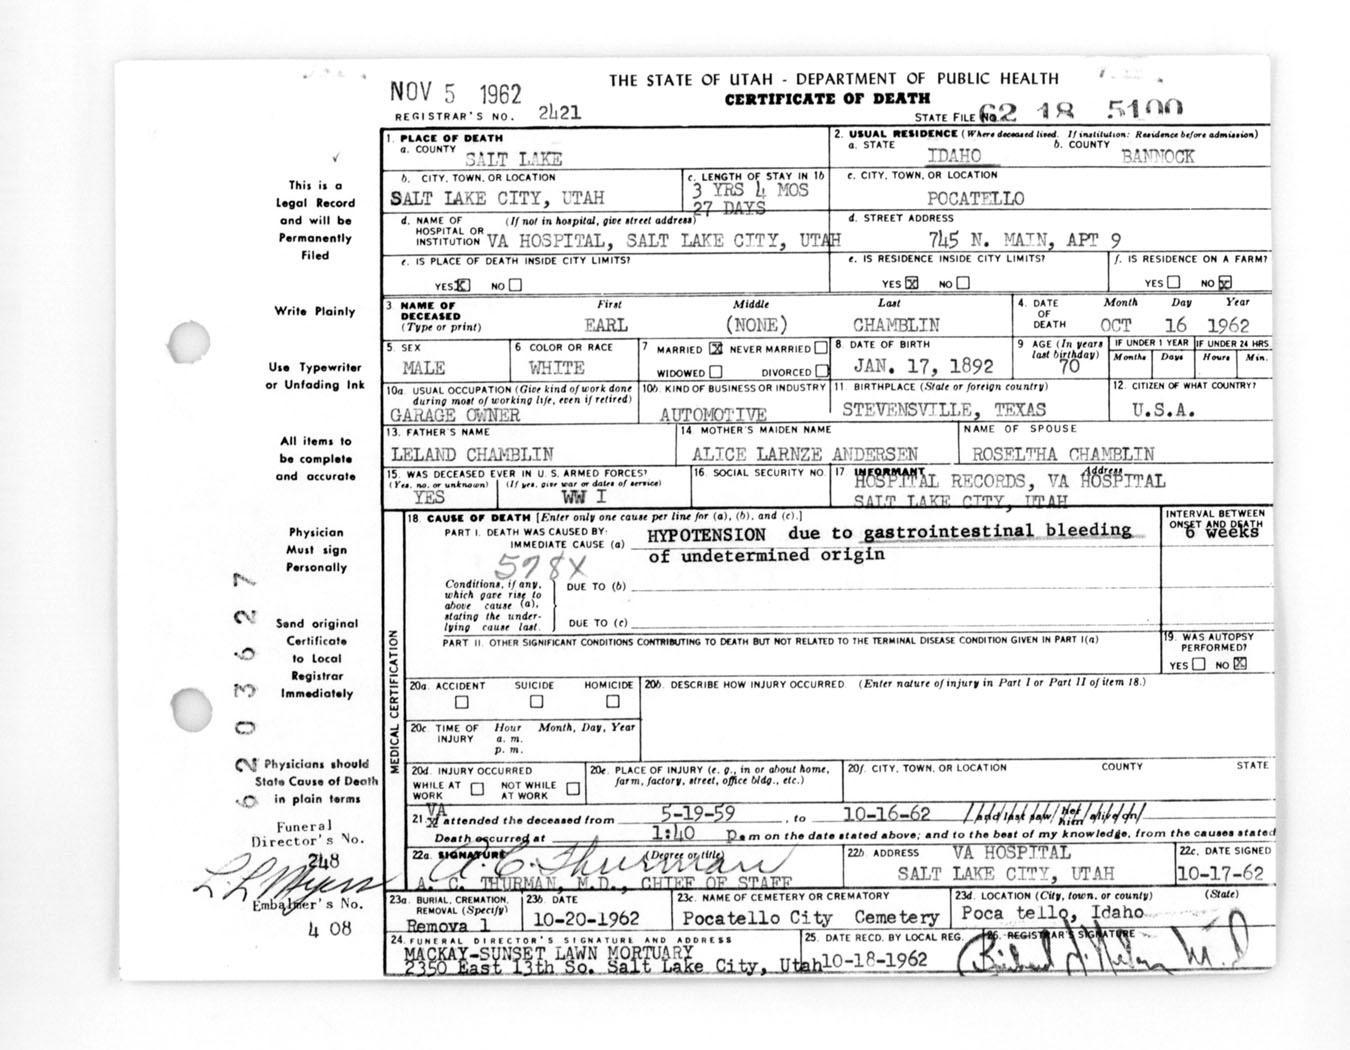 NOV 5 1962
THE STATE OF UTAH - DEPARTMENT OF PUBLIC HEALTH
CERTIFICATE OF DEATH
REGISTRAR'S NO. 2421
STATE FILE No. 62 18 5100
1. PLACE OF DEATH
a. COUNTY SALT LAKE
2. USUAL RESIDENCE (Where deceased lived. If institution: Residence before admission)
a. STATE IDAHO b. COUNTY BANNOCK
b. CITY, TOWN, OR LOCATION
SALT LAKE CITY, UTAH
c. LENGTH OF STAY IN 1b
3 YRS 4 MOS
27 DAYS
c. CITY, TOWN, OR LOCATION
POCATELLO
d. NAME OF HOSPITAL OR INSTITUTION (If not in hospital, give street address)
VA HOSPITAL, SALT LAKE CITY, UTAH
d. STREET ADDRESS
745 N. MAIN, APT 9
e. IS PLACE OF DEATH INSIDE CITY LIMITS?
YES X NO
e. IS RESIDENCE INSIDE CITY LIMITS?
YES X NO
f. IS RESIDENCE ON A FARM?
YES NO X
3 NAME OF DECEASED (Type or print)
First Middle Last
EARL (NONE) CHAMBLIN
4. DATE OF DEATH
Month Day Year
OCT 16 1962
5. SEX
MALE
6 COLOR OR RACE
WHITE
7 MARRIED X NEVER MARRIED
WIDOWED DIVORCED
8 DATE OF BIRTH
JAN. 17, 1892
9 AGE (In years last birthday)
70
IF UNDER 1 YEAR IF UNDER 24 HRS
Months Days Hours Min.
10a. USUAL OCCUPATION (Give kind of work done during most of working life, even if retired)
GARAGE OWNER
10b. KIND OF BUSINESS OR INDUSTRY
AUTOMOTIVE
11 BIRTHPLACE (State or foreign country)
STEVENSVILLE, TEXAS
12. CITIZEN OF WHAT COUNTRY?
U.S.A.
13. FATHER'S NAME
LELAND CHAMBLIN
14 MOTHER'S MAIDEN NAME
ALICE LARNZE ANDERSEN
NAME OF SPOUSE
ROSELTHA CHAMBLIN
15. WAS DECEASED EVER IN U.S. ARMED FORCES?
(Yes, no, or unknown) (If yes, give war or dates of service)
YES WW I
16. SOCIAL SECURITY NO.
17 INFORMANT Address
HOSPITAL RECORDS, VA HOSPITAL
SALT LAKE CITY, UTAH
18. CAUSE OF DEATH [Enter only one cause per line for (a), (b), and (c).]
PART I. DEATH WAS CAUSED BY:
IMMEDIATE CAUSE (a) HYPOTENSION due to gastrointestinal bleeding
of undetermined origin
578X
INTERVAL BETWEEN ONSET AND DEATH
6 weeks
Conditions, if any, which gave rise to above cause (a), stating the underlying cause last.
DUE TO (b)
DUE TO (c)
PART II. OTHER SIGNIFICANT CONDITIONS CONTRIBUTING TO DEATH BUT NOT RELATED TO THE TERMINAL DISEASE CONDITION GIVEN IN PART I(a)
19. WAS AUTOPSY PERFORMED?
YES NO X
MEDICAL CERTIFICATION
20a. ACCIDENT SUICIDE HOMICIDE
20b. DESCRIBE HOW INJURY OCCURRED. (Enter nature of injury in Part I or Part II of item 18.)
20c. TIME OF INJURY
Hour Month, Day, Year
a. m.
p. m.
20d. INJURY OCCURRED
WHILE AT WORK NOT WHILE AT WORK
20e. PLACE OF INJURY (e. g., in or about home, farm, factory, street, office bldg., etc.)
20f. CITY, TOWN, OR LOCATION COUNTY STATE
21. VA attended the deceased from 5-19-59, to 10-16-62 and last saw her him alive on
Death occurred at 1:40 p.m on the date stated above; and to the best of my knowledge, from the causes stated
22a. SIGNATURE (Degree or title)
A. C. Thurman
A. C. THURMAN, M.D., CHIEF OF STAFF
22b ADDRESS VA HOSPITAL
SALT LAKE CITY, UTAH
22c. DATE SIGNED
10-17-62
23a. BURIAL, CREMATION, REMOVAL (Specify)
Remova l
23b. DATE
10-20-1962
23c. NAME OF CEMETERY OR CREMATORY
Pocatello City Cemetery
23d. LOCATION (City, town, or county) (State)
Poca tello, Idaho
24. FUNERAL DIRECTOR'S SIGNATURE AND ADDRESS
MACKAY-SUNSET LAWN MORTUARY
2350 East 13th So. Salt Lake City, Utah
25. DATE RECD. BY LOCAL REG.
10-18-1962
26. REGISTRAR'S SIGNATURE
This is a
Legal Record
and will be
Permanently
Filed
Write Plainly
Use Typewriter
or Unfading Ink
All items to
be complete
and accurate
Physician
Must sign
Personally
Send original
Certificate
to Local
Registrar
Immediately
Physicians should
State Cause of Death
in plain terms
Funeral
Director's No.
248
L L Myers
Embalmer's No.
408
62 03627